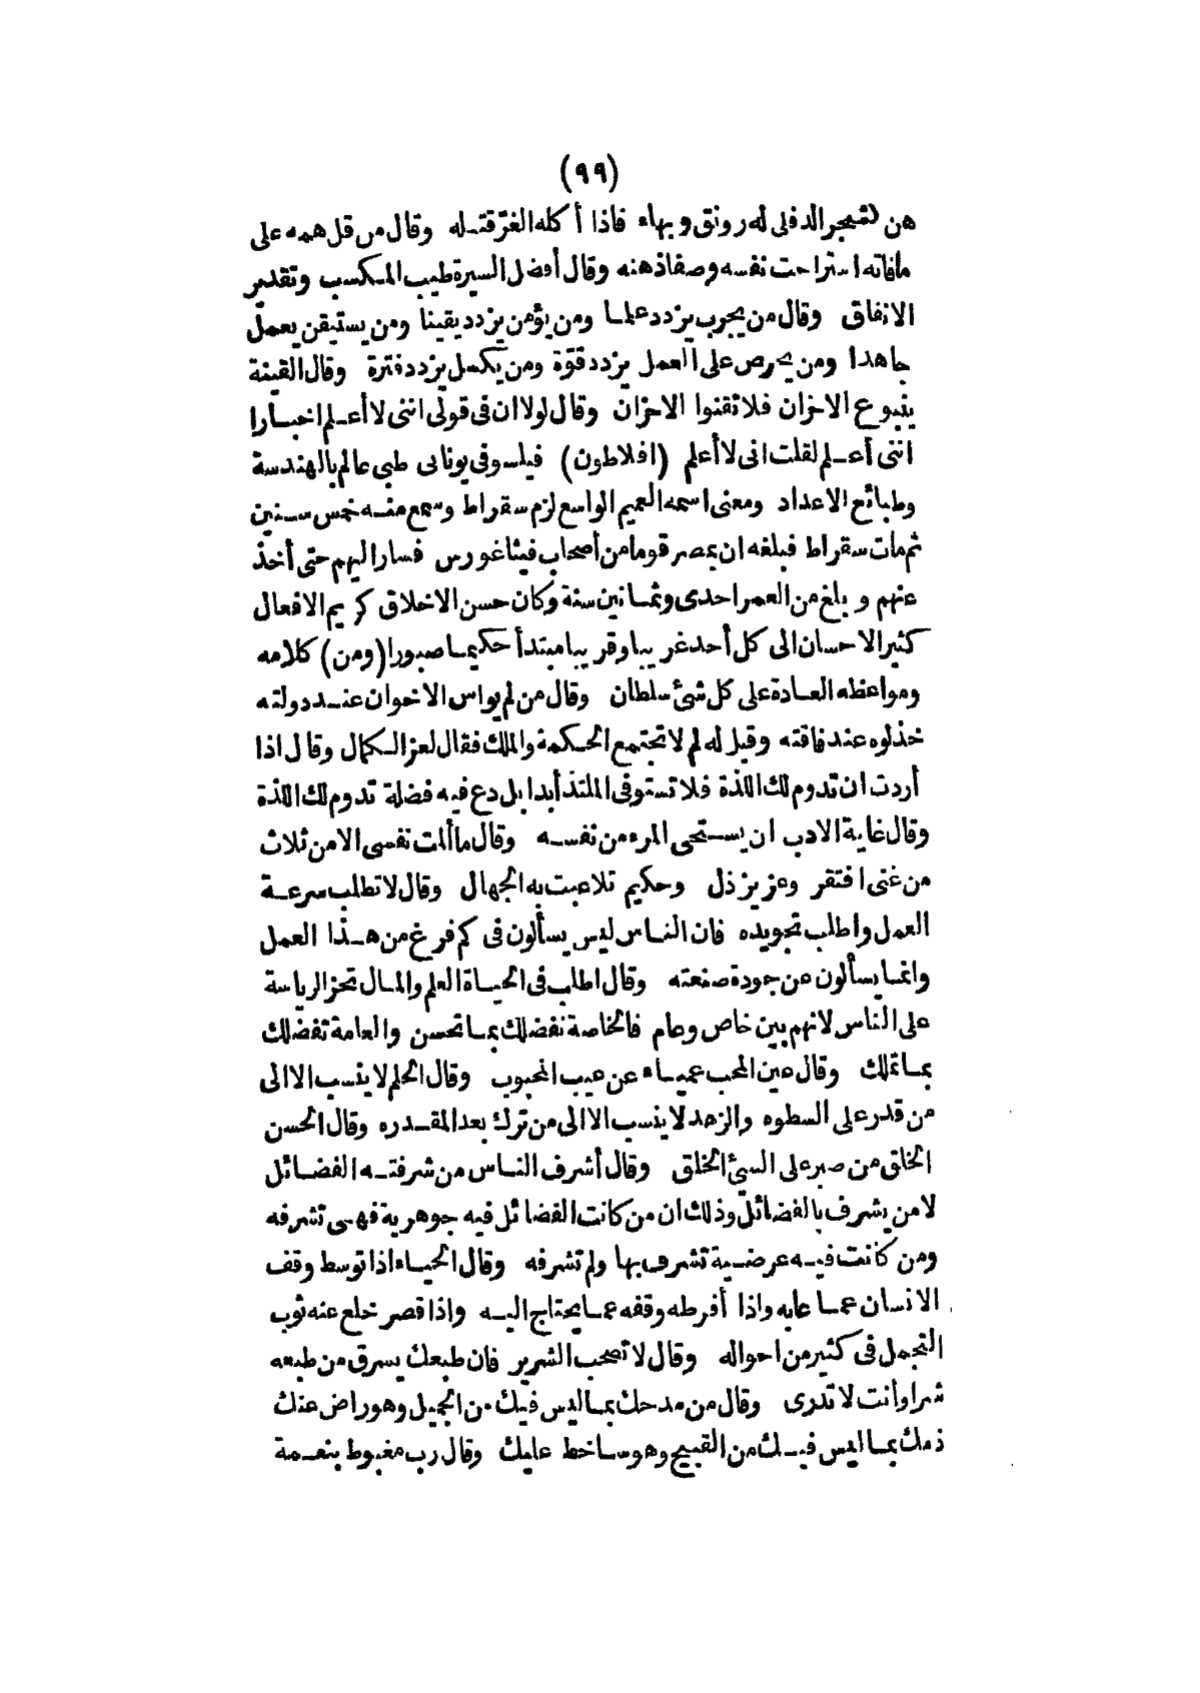 (٩٩)
هن كشجر الدفلى له رونق وبهاء فاذا أكله الغرّ قتله وقال من قل همه على
مافاته استراحت نفسه وصفاذهنه وقال أفضل السيرة طيب المكسب وتقدير
الانفاق وقال من يجرب يزدد علما ومن يؤمن يزدد يقينا ومن يستيقن يعمل
جاهدا ومن يحرص على العمل يزدد قوّة ومن يكسل يزدد فترة وقال القينة
ينبوع الاحزان فلا تقنوا الاحزان وقال لولا ان فى قولى اننى لا أعلم اخبارا
اننى أعلم لقلت انى لا أعلم (افلاطون) فيلسوف يونانى طبى عالم بالهندسة
وطبائع الاعداد ومعنى اسمه العميم الواسع لزم سقراط وسمع منه خمس سنين
ثم مات سقراط فبلغه ان بمصر قوما من أصحاب فيثاغورس فسار اليهم حتى أخذ
عنهم وبلغ من العمر احدى وثمانين سنة وكان حسن الاخلاق كريم الافعال
كثير الاحسان الى كل أحد غريبا وقريبا مبتدأ حكيما صبورا (ومن) كلامه
ومواعظه العادة على كل شئ سلطان وقال من لم يواس الاخوان عند دولته
خذلوه عند فاقته وقيل له لم لا تجتمع الحكمة والملك فقال لعز الكمال وقال اذا
أردت ان تدوم لك اللذة فلا تستوفى الملتذ أبدا بل دع فيه فضلة تدوم لك اللذة
وقال غاية الادب ان يستحى المرء من نفسه وقال ما ألمت نفسى الا من ثلاث
من غنى افتقر وعزيز ذل وحكيم تلاعبت به الجهال وقال لا تطلب سرعة
العمل واطلب تجويده فان الناس ليس يسألون فى كم فرغ من هذا العمل
وانما يسألون عن جودة صنعته وقال اطلب فى الحياة العلم والمال تحز الرياسة
على الناس لانهم بين خاص وعام فالخاصة تفضلك بما تحسن والعامة تفضلك
بما تملك وقال عين المحب عمياء عن عيب المحبوب وقال الحلم لا ينسب الا الى
من قدر على السطوه والزهد لا ينسب الا الى من ترك بعد المقدره وقال الحسن
الخلق من صبر على السيئ الخلق وقال أشرف الناس من شرفته الفضائل
لا من يشرف بالفضائل وذلك ان من كانت الفضائل فيه جوهرية فهى تشرفه
ومن كانت فيه عرضية تشرف بها ولم تشرفه وقال الحياء اذا توسط وقف
الانسان عما عابه واذا أفرطه وقفه عما يحتاج اليه واذا قصر خلع عنه ثوب
التجمل فى كثير من احواله وقال لا تصحب الشرير فان طبعك يسرق من طبعه
شرا وأنت لا تدرى وقال من مدحك بما ليس فيك من الجميل وهو راض عنك
ذمك بما ليس فيك من القبيح وهو ساخط عليك وقال رب مغبوط بنعمة